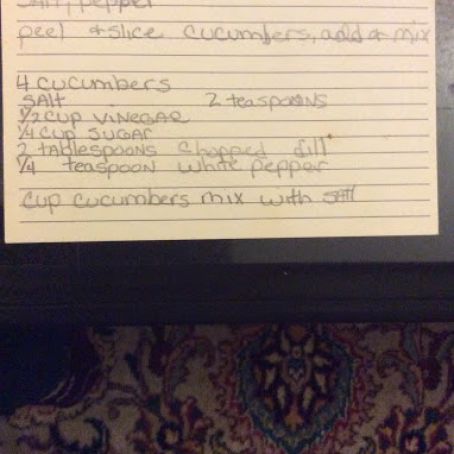 Salt, pepper
peel + slice cucumbers, add + mix
4 cucumbers
Salt 2 teaspoons
1/2 cup vinegar
1/4 cup sugar
2 tablespoons chopped dill
1/4 teaspoon white pepper
cup cucumbers mix with salt